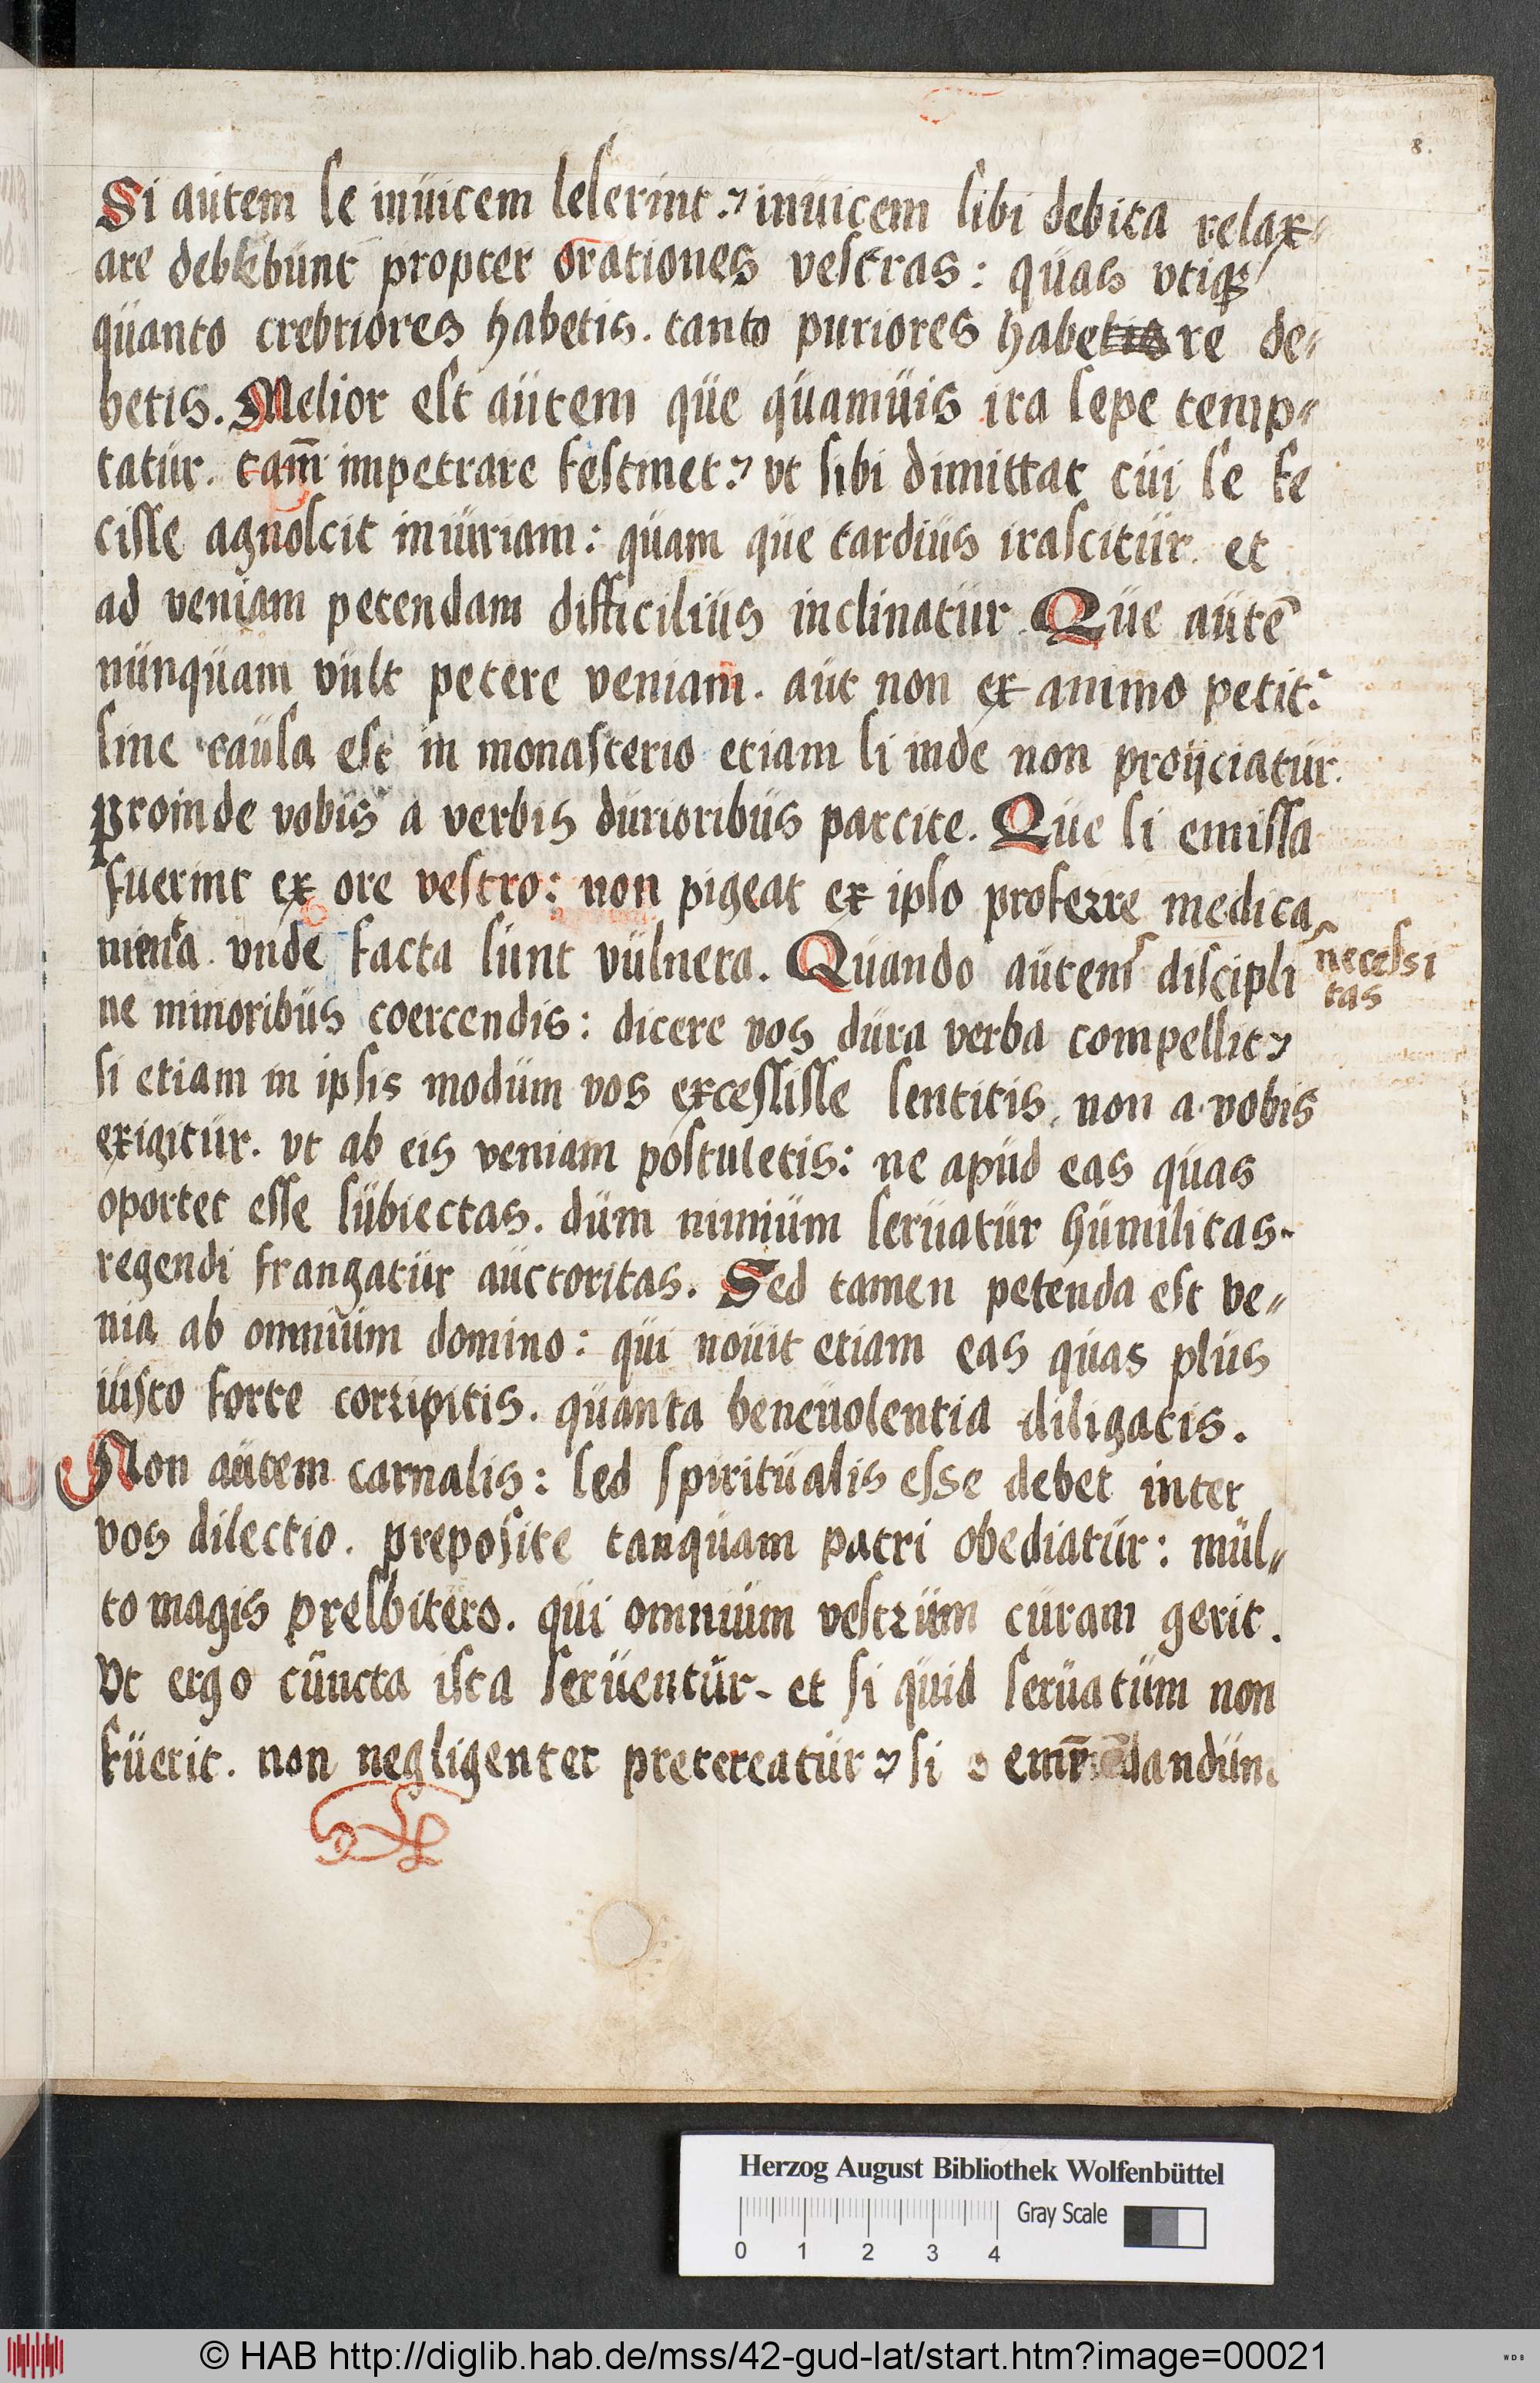 8.
Si autem se inuicem leserint. inuicem sibi debita relax-
are debebunt propter orationes vestras: quas vtiqꝫ
quanto crebriores habetis. tanto puriores habere de-
betis. Melior est autem que quamuis ira sepe temp-
tatur. tam̄ impetrare festinet ut sibi dimittat cui se fe
cisse agnoscit iniuriam: quam que tardius irascitur. et
ad veniam petendam difficilius inclinatur. Que autē
nunquam vult petere veniam. aut non ex animo petit:
sine causa est in monasterio etiam si inde non proijciatur.
proinde vobis a verbis durioribus parcite. Que si emissa
fuerint ex ore vestro: non pigeat ex ipso proferre medica
menta. vnde facta sunt vulnera. Quando autem discipli
necessi
tas
ne minoribus coercendis: dicere vos dura verba compellit
si etiam in ipsis modum vos excessisse sentitis. non a vobis
exigitur. vt ab eis veniam postuletis: ne apud eas quas
oportet esse subiectas. dum nimium seruatur humilitas-
regendi frangatur auctoritas. Sed tamen petenda est ve-
nia ab omnium domino: qui nouit etiam eas quas plus
iusto forte corripitis. quanta beneuolentia diligatis.
Non autem carnalis: sed spiritualis esse debet inter
vos dilectio. preposite tanquam patri obediatur: mul-
to magis presbitero. qui omnium vestrum curam gerit.
Vt ergo cuncta ista seruentur- et si quid seruatum non
fuerit. non negligenter pretereatur si emendandum
Herzog August Bibliothek Wolfenbüttel
Gray Scale
0 1 2 3 4
© HAB http://diglib.hab.de/mss/42-gud-lat/start.htm?image=00021
WDB